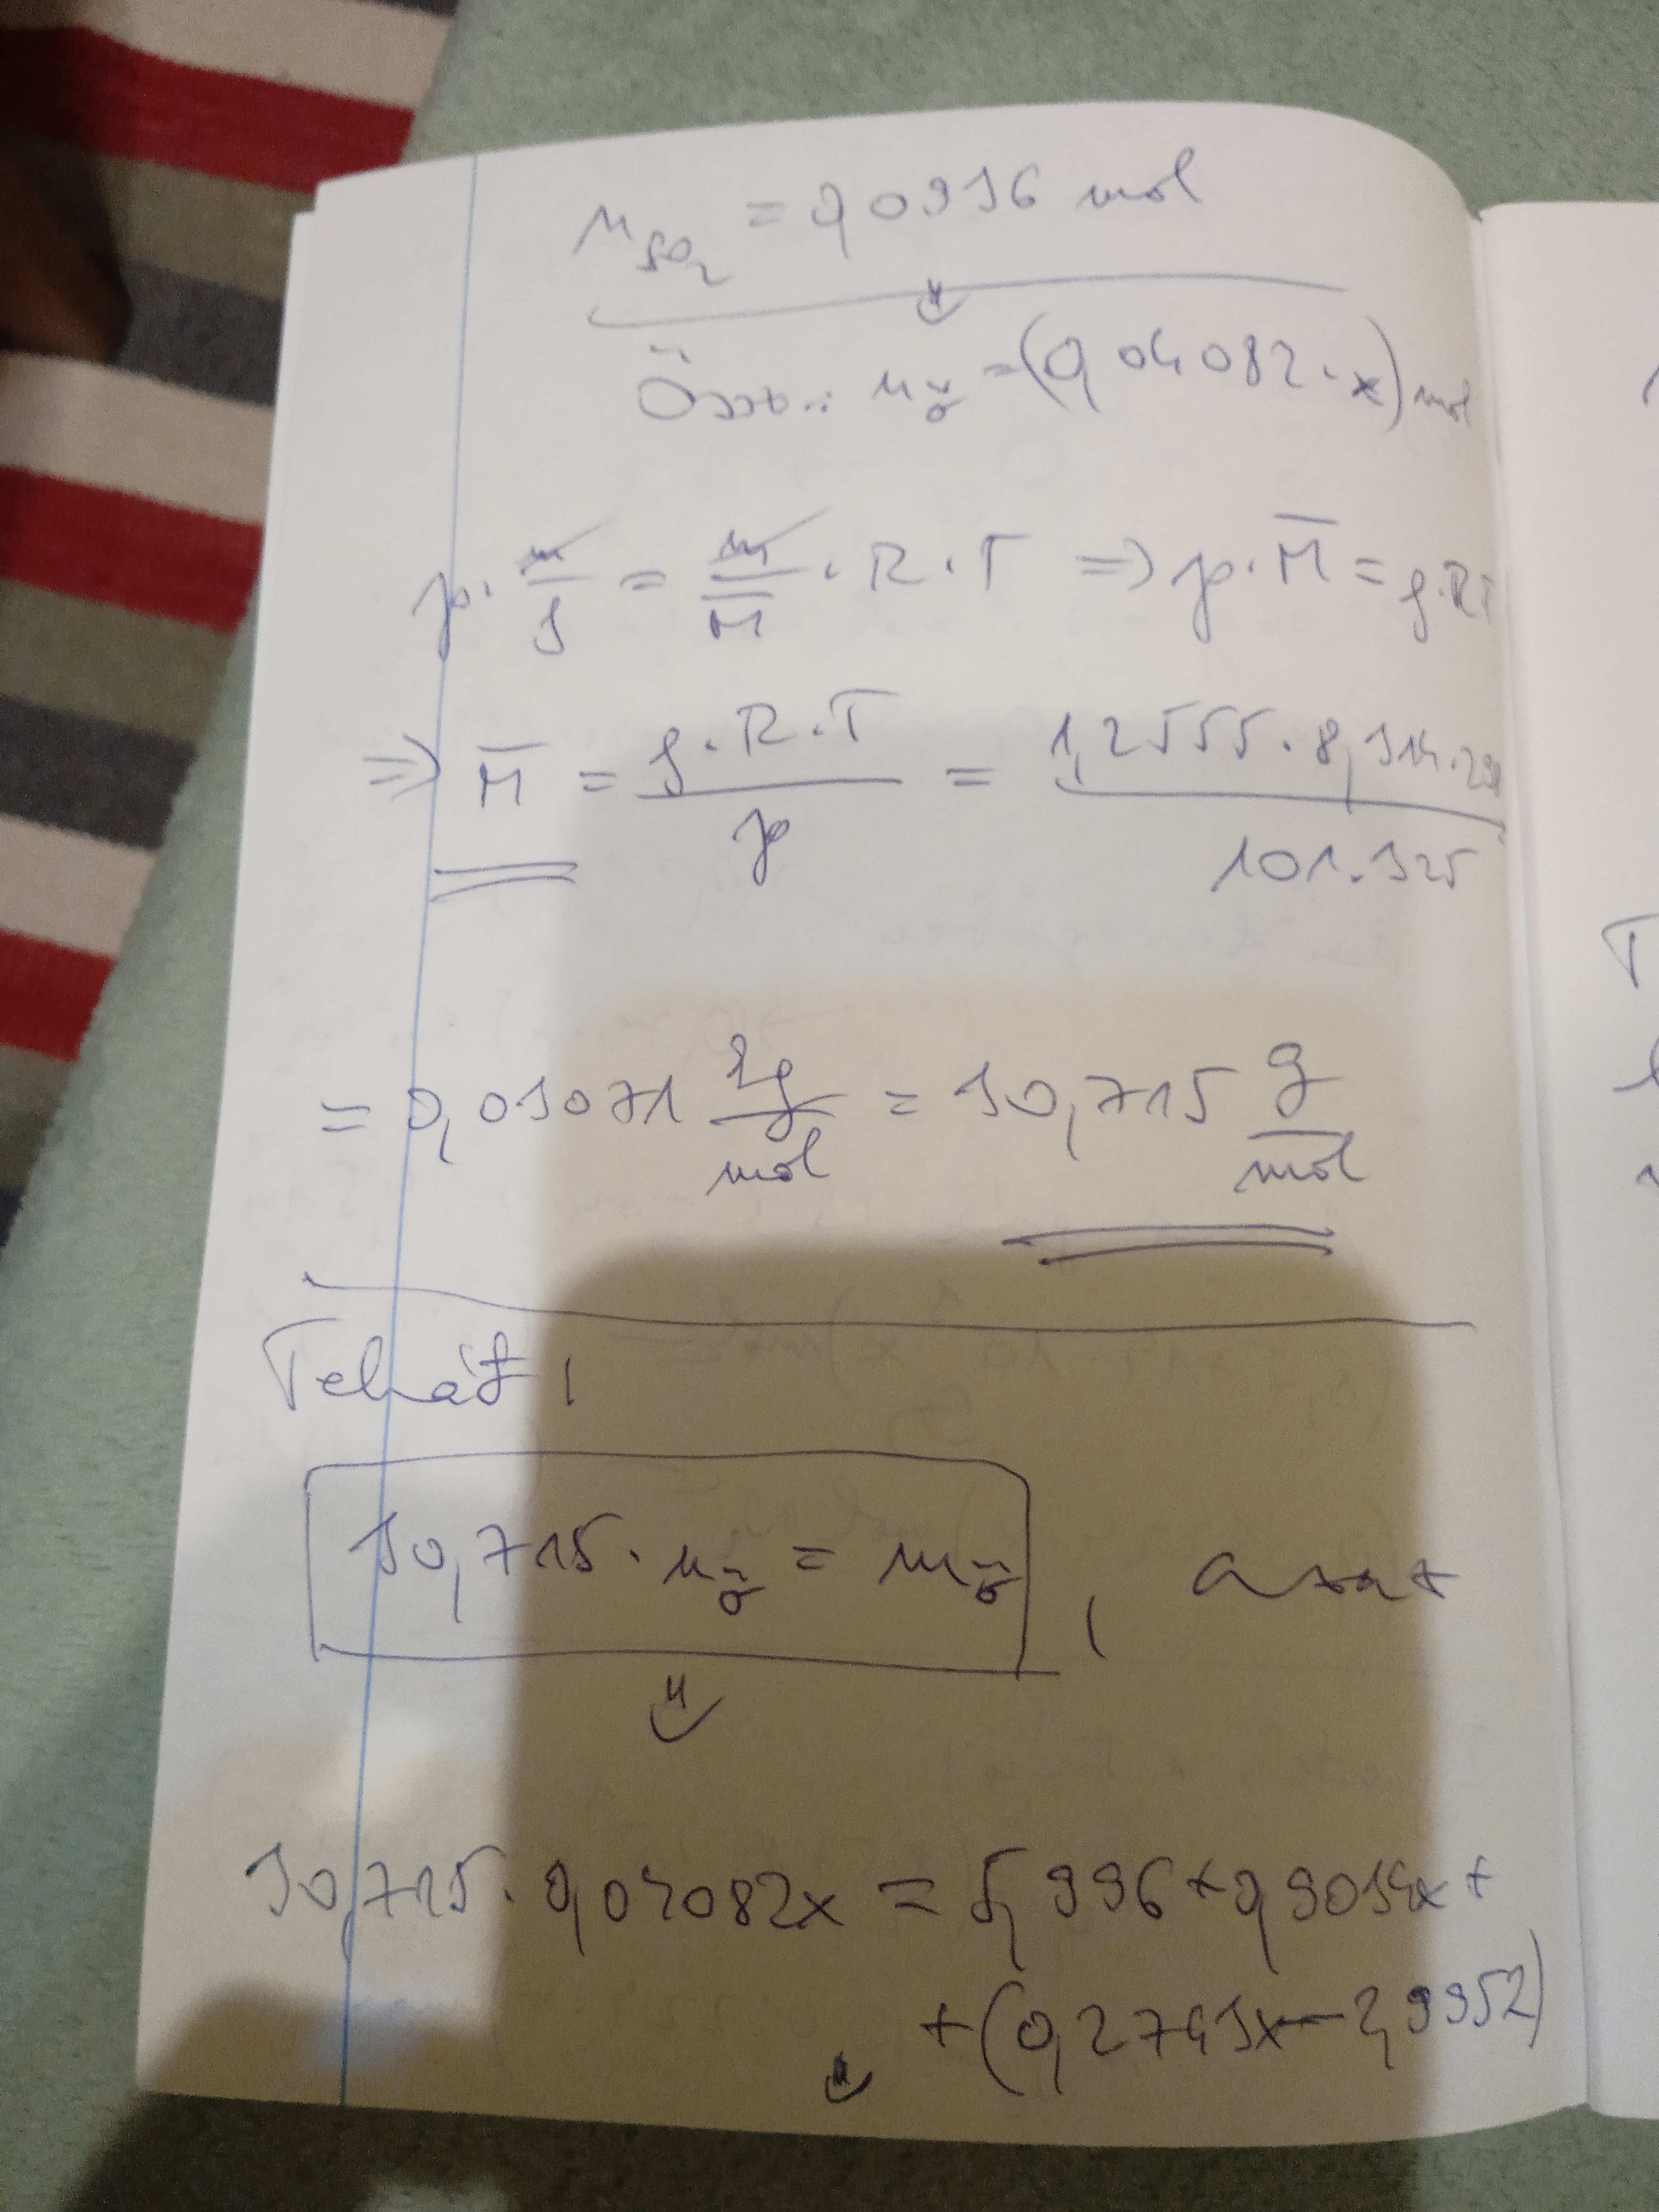 n_SO₂ = 0,0936 mol
Össz.: n_ö = (0,04082·x) mol
p · m/ρ = m/M̄ · R · T ⇒ p · M̄ = ρ·RT
⇒ M̄ = ρ·R·T/p = 1,2555·8,314·298/101.325
= 0,03071 kg/mol = 30,715 g/mol
Tehát,
30,715 · n_ö = m_ö , azaz
30,715·0,04082x = 5,996+0,9034x+
+(0,2743x−2,9952)